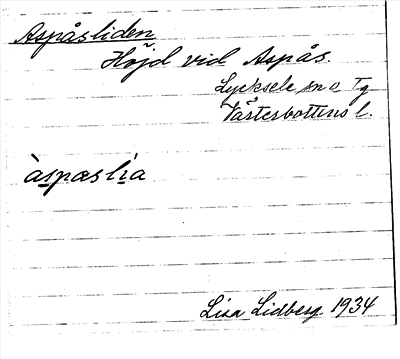 Aspåsliden
Höjd vid Aspås.
Lycksele sn o Tg
Västerbottens l.
àspæslìa
Lisa Lidberg 1934